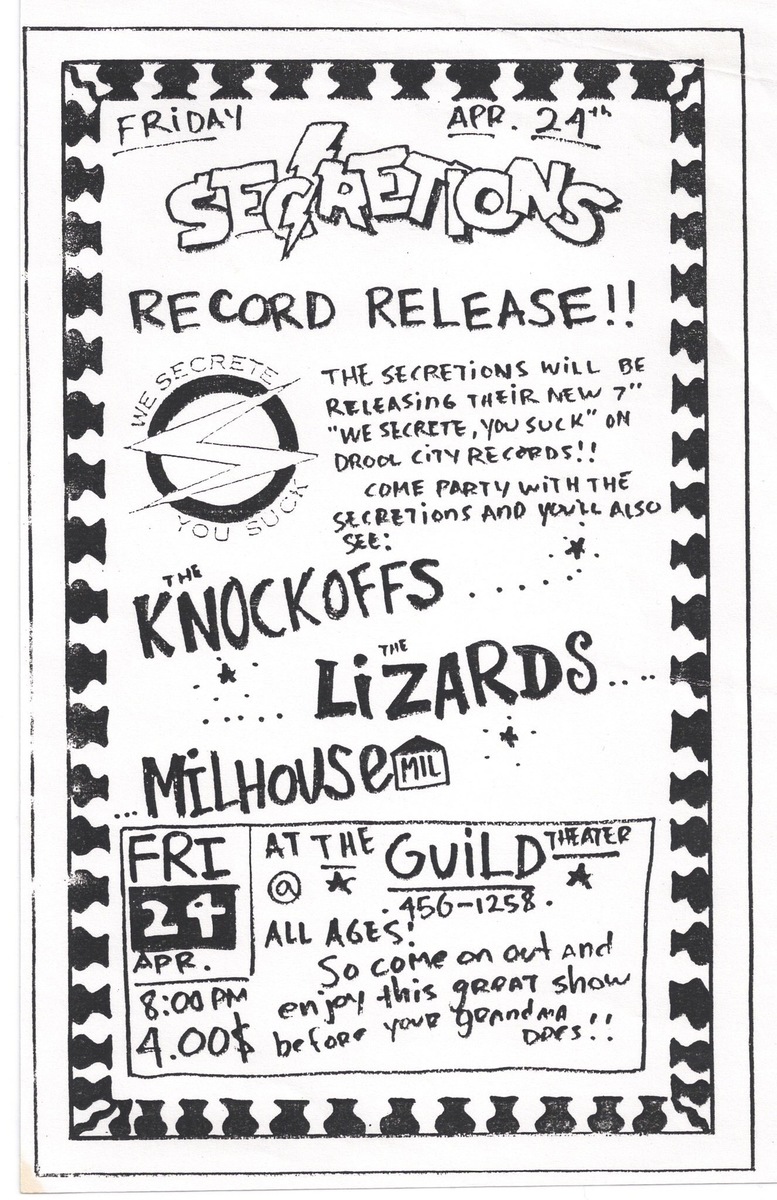 FRiDAY APR. 24th
SECRETIONS
RECORD RELEASE!!
WE SECRETE
YOU SUCK
THE SECRETiONS WiLL BE
RELEASiNG THEiR NEW 7"
"WE SECRETE, YOU SUCK" ON
DROOL CiTY RECORDS!!
COME PARTY WiTH THE
SECRETiONS AND YOU'LL ALSO
SEE:
THE
KNOCKOFFS......
THE
LiZARDS....
.....
...MiLHOUSe MIL
FRI
24
APR.
8:00 PM
4.00$
AT THE GUiLD THEATER
@
.456-1258.
ALL AGES!
So come on out and
enjoy this great show
before your grandma
DOES!!